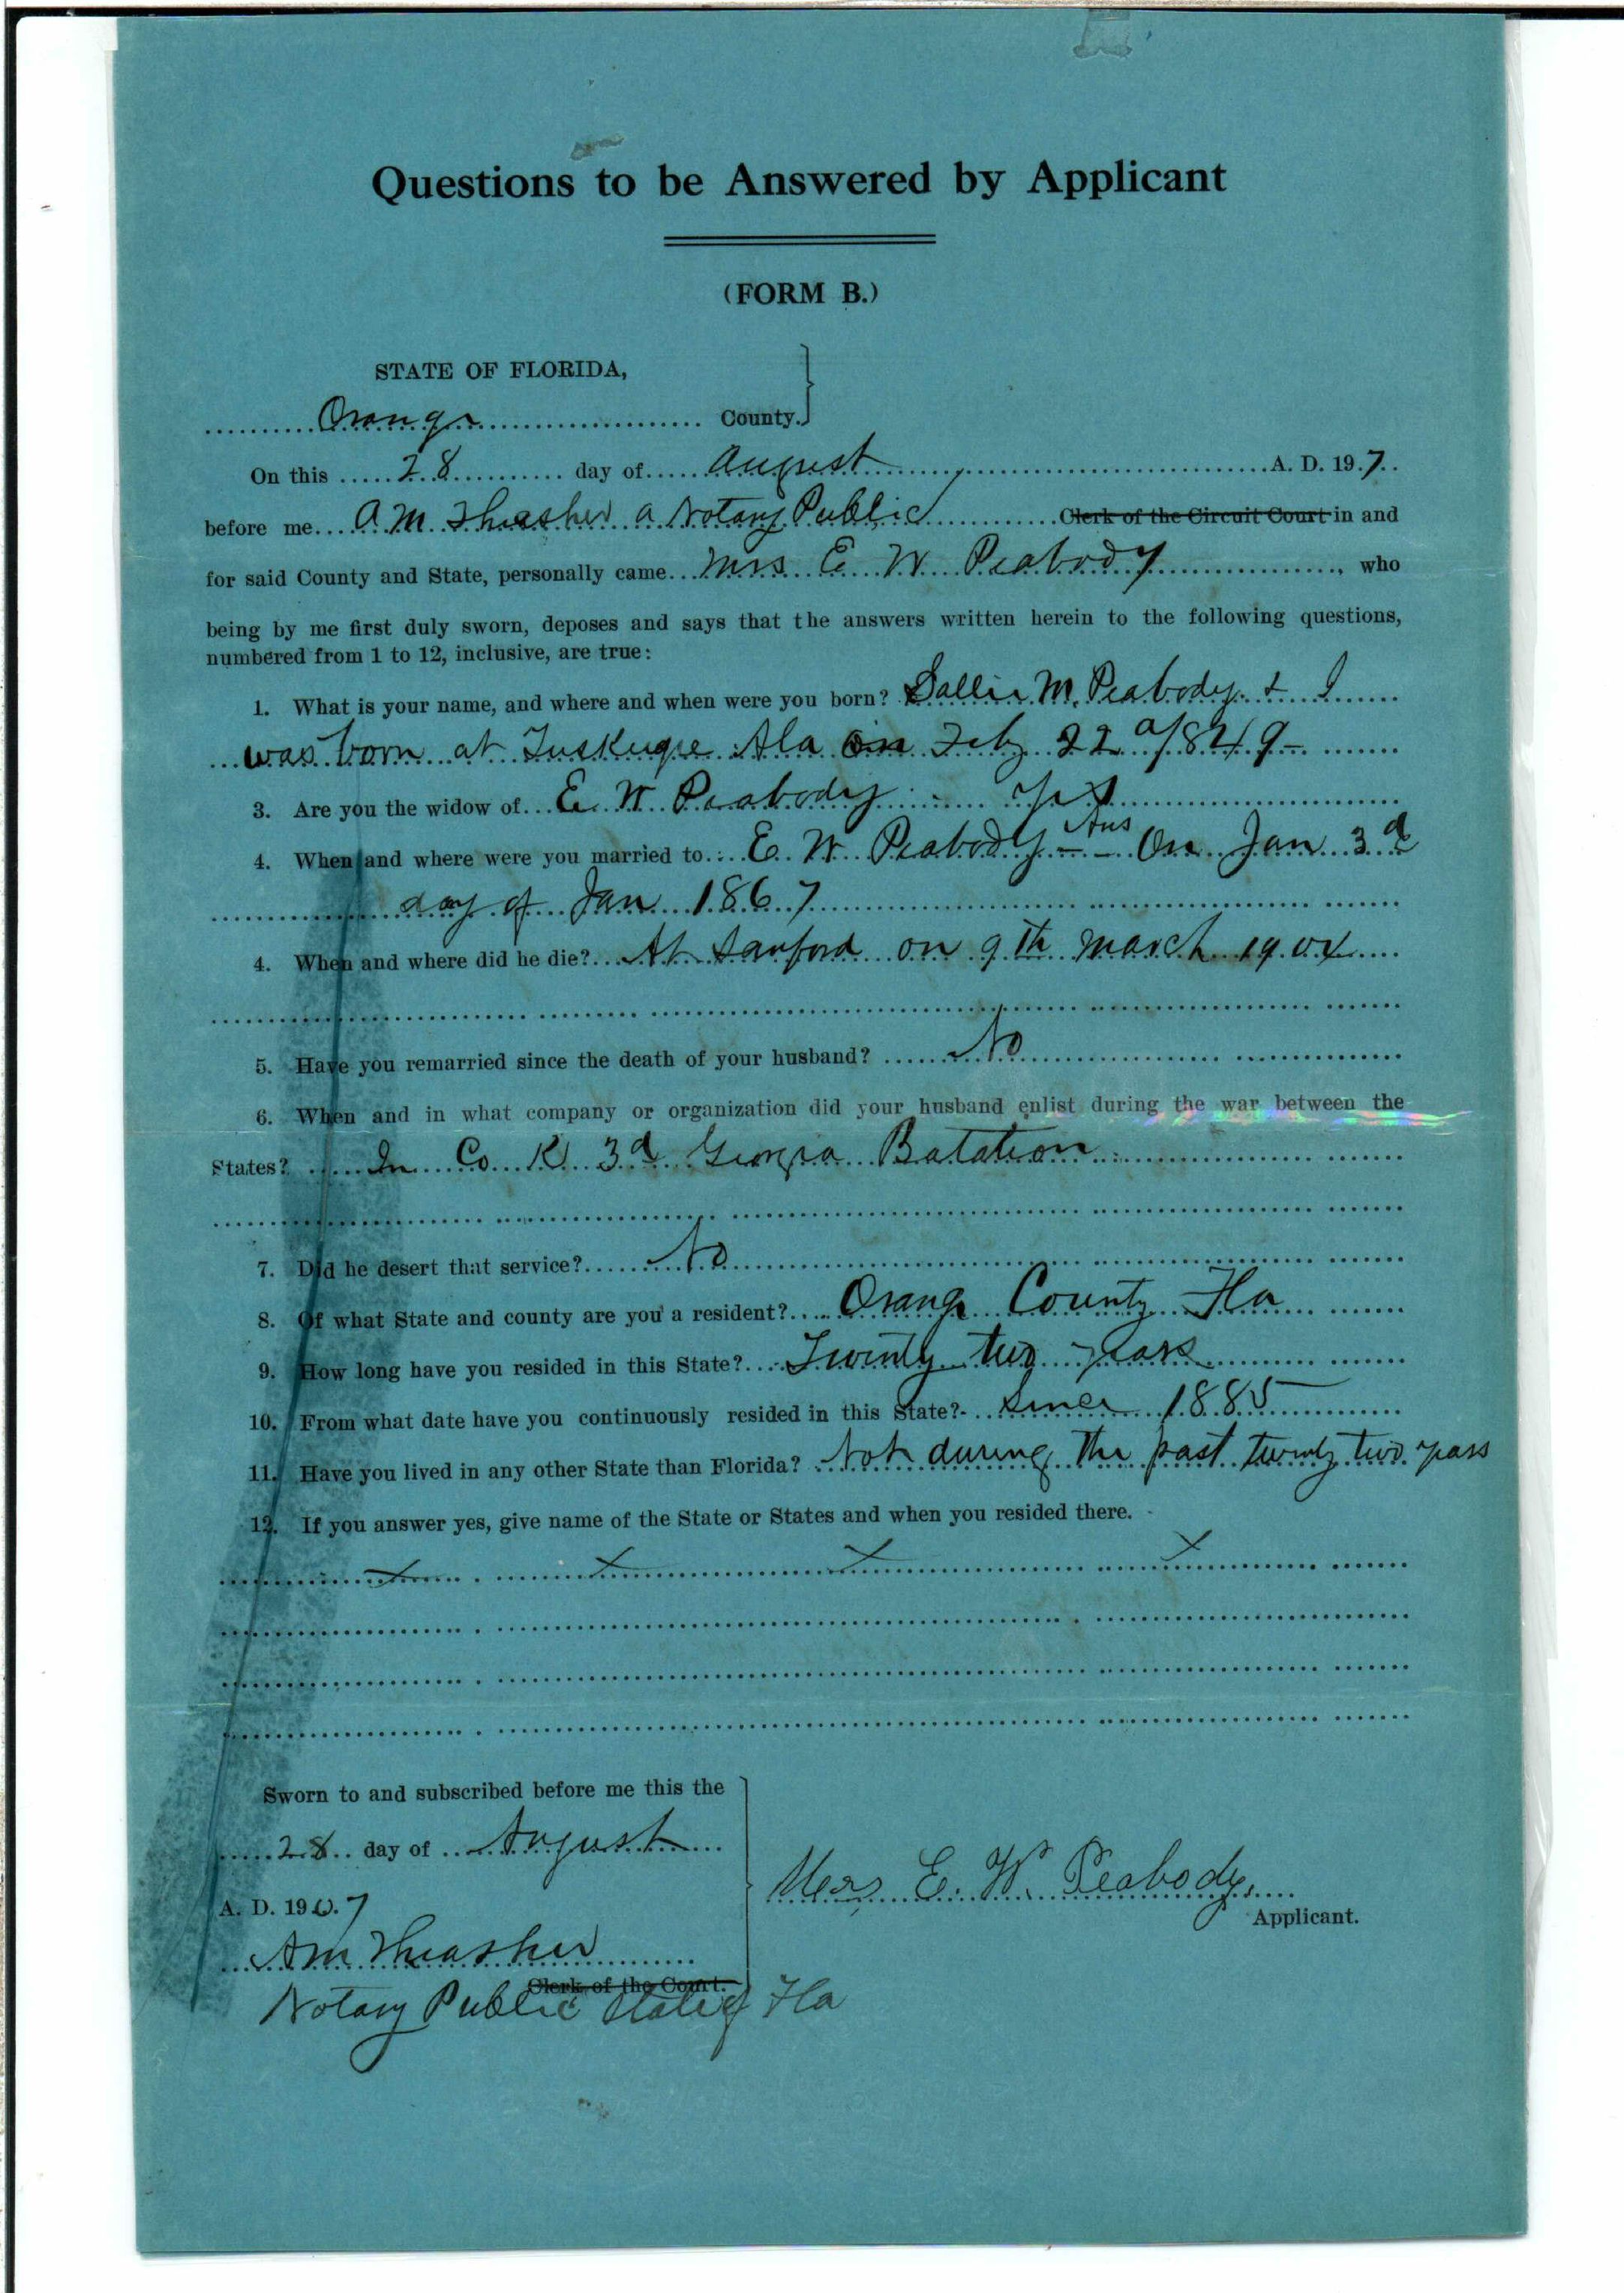 Questions to be Answered by Applicant
(FORM B.)
STATE OF FLORIDA,
Orange County.
On this 28 day of August A. D. 19 7
before me A M Thrasher a Notary Public Clerk of the Circuit Court in and
for said County and State, personally came Mrs E W Peabody, who
being by me first duly sworn, deposes and says that the answers written herein to the following questions,
numbered from 1 to 12, inclusive, are true:
1. What is your name, and where and when were you born? Sallie M. Peabody & I
was born at Tuskegee Ala on Feb 22 d 1849
3. Are you the widow of E. W Peabody - yes
4. When and where were you married to E. W. Peabody - Ans - On Jan 3d
day of Jan 1867
4. When and where did he die? At Sanford on 9th March 1904
5. Have you remarried since the death of your husband? No
6. When and in what company or organization did your husband enlist during the war between the
States? In Co K 3d Georgia Batation
7. Did he desert that service? No
8. Of what State and county are you a resident? Orange County Fla
9. How long have you resided in this State? Twenty two years
10. From what date have you continuously resided in this State?- Since 1885
11. Have you lived in any other State than Florida? Not during the past twenty two years
12. If you answer yes, give name of the State or States and when you resided there.
x x x x
Sworn to and subscribed before me this the
28 day of August
A. D. 190 7
Mrs E. W. Peabody,
Applicant.
A M Thrasher
Clerk of the Court.
Notary Public State of Fla